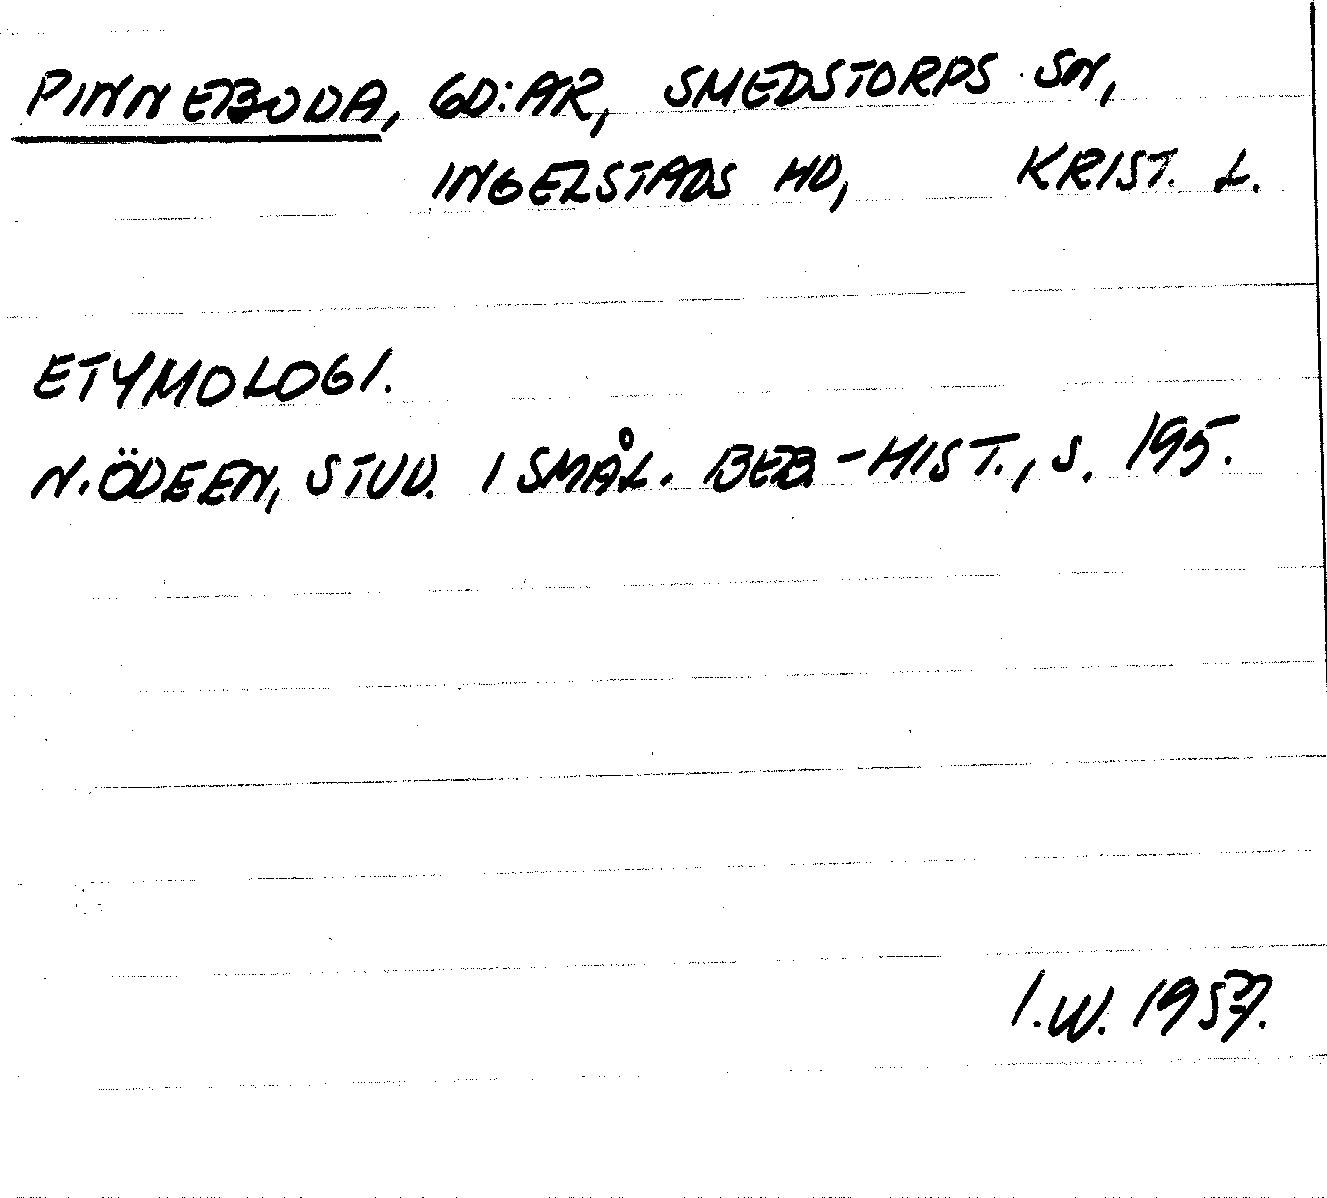 PINNEBODA, GD:AR, SMEDSTORPS SN,
INGELSTADS HD, KRIST. L.
ETYMOLOGI.
N. ÖDEEN, STUD. I SMÅL. BEB.-HIST., S. 195.
I.W. 1957.